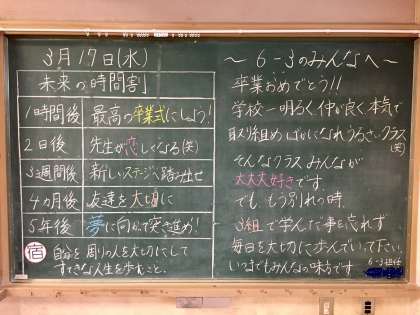 3月17日(水)
未来の時間割
1時間後 最高の卒業式にしよう!
2日後 先生が恋しくなる(笑)
3週間後 新しいステージへ踏み出せ
4カ月後 友達を大切に
5年後 夢に向かって突き進め!
宿 自分を周りの人を大切にして
すてきな人生を歩むこと。
〜6-3のみんなへ〜
卒業おめでとう!!
学校一明るく仲が良く、本気で
取り組め、ばかになれ、うるさいクラス(笑)
そんなクラス、みんなが
大大大好きです。
でも、もう別れの時、
3組で学んだ事を忘れず
毎日を大切に歩んでいって下さい。
いつまでもみんなの味方です
6-3担任